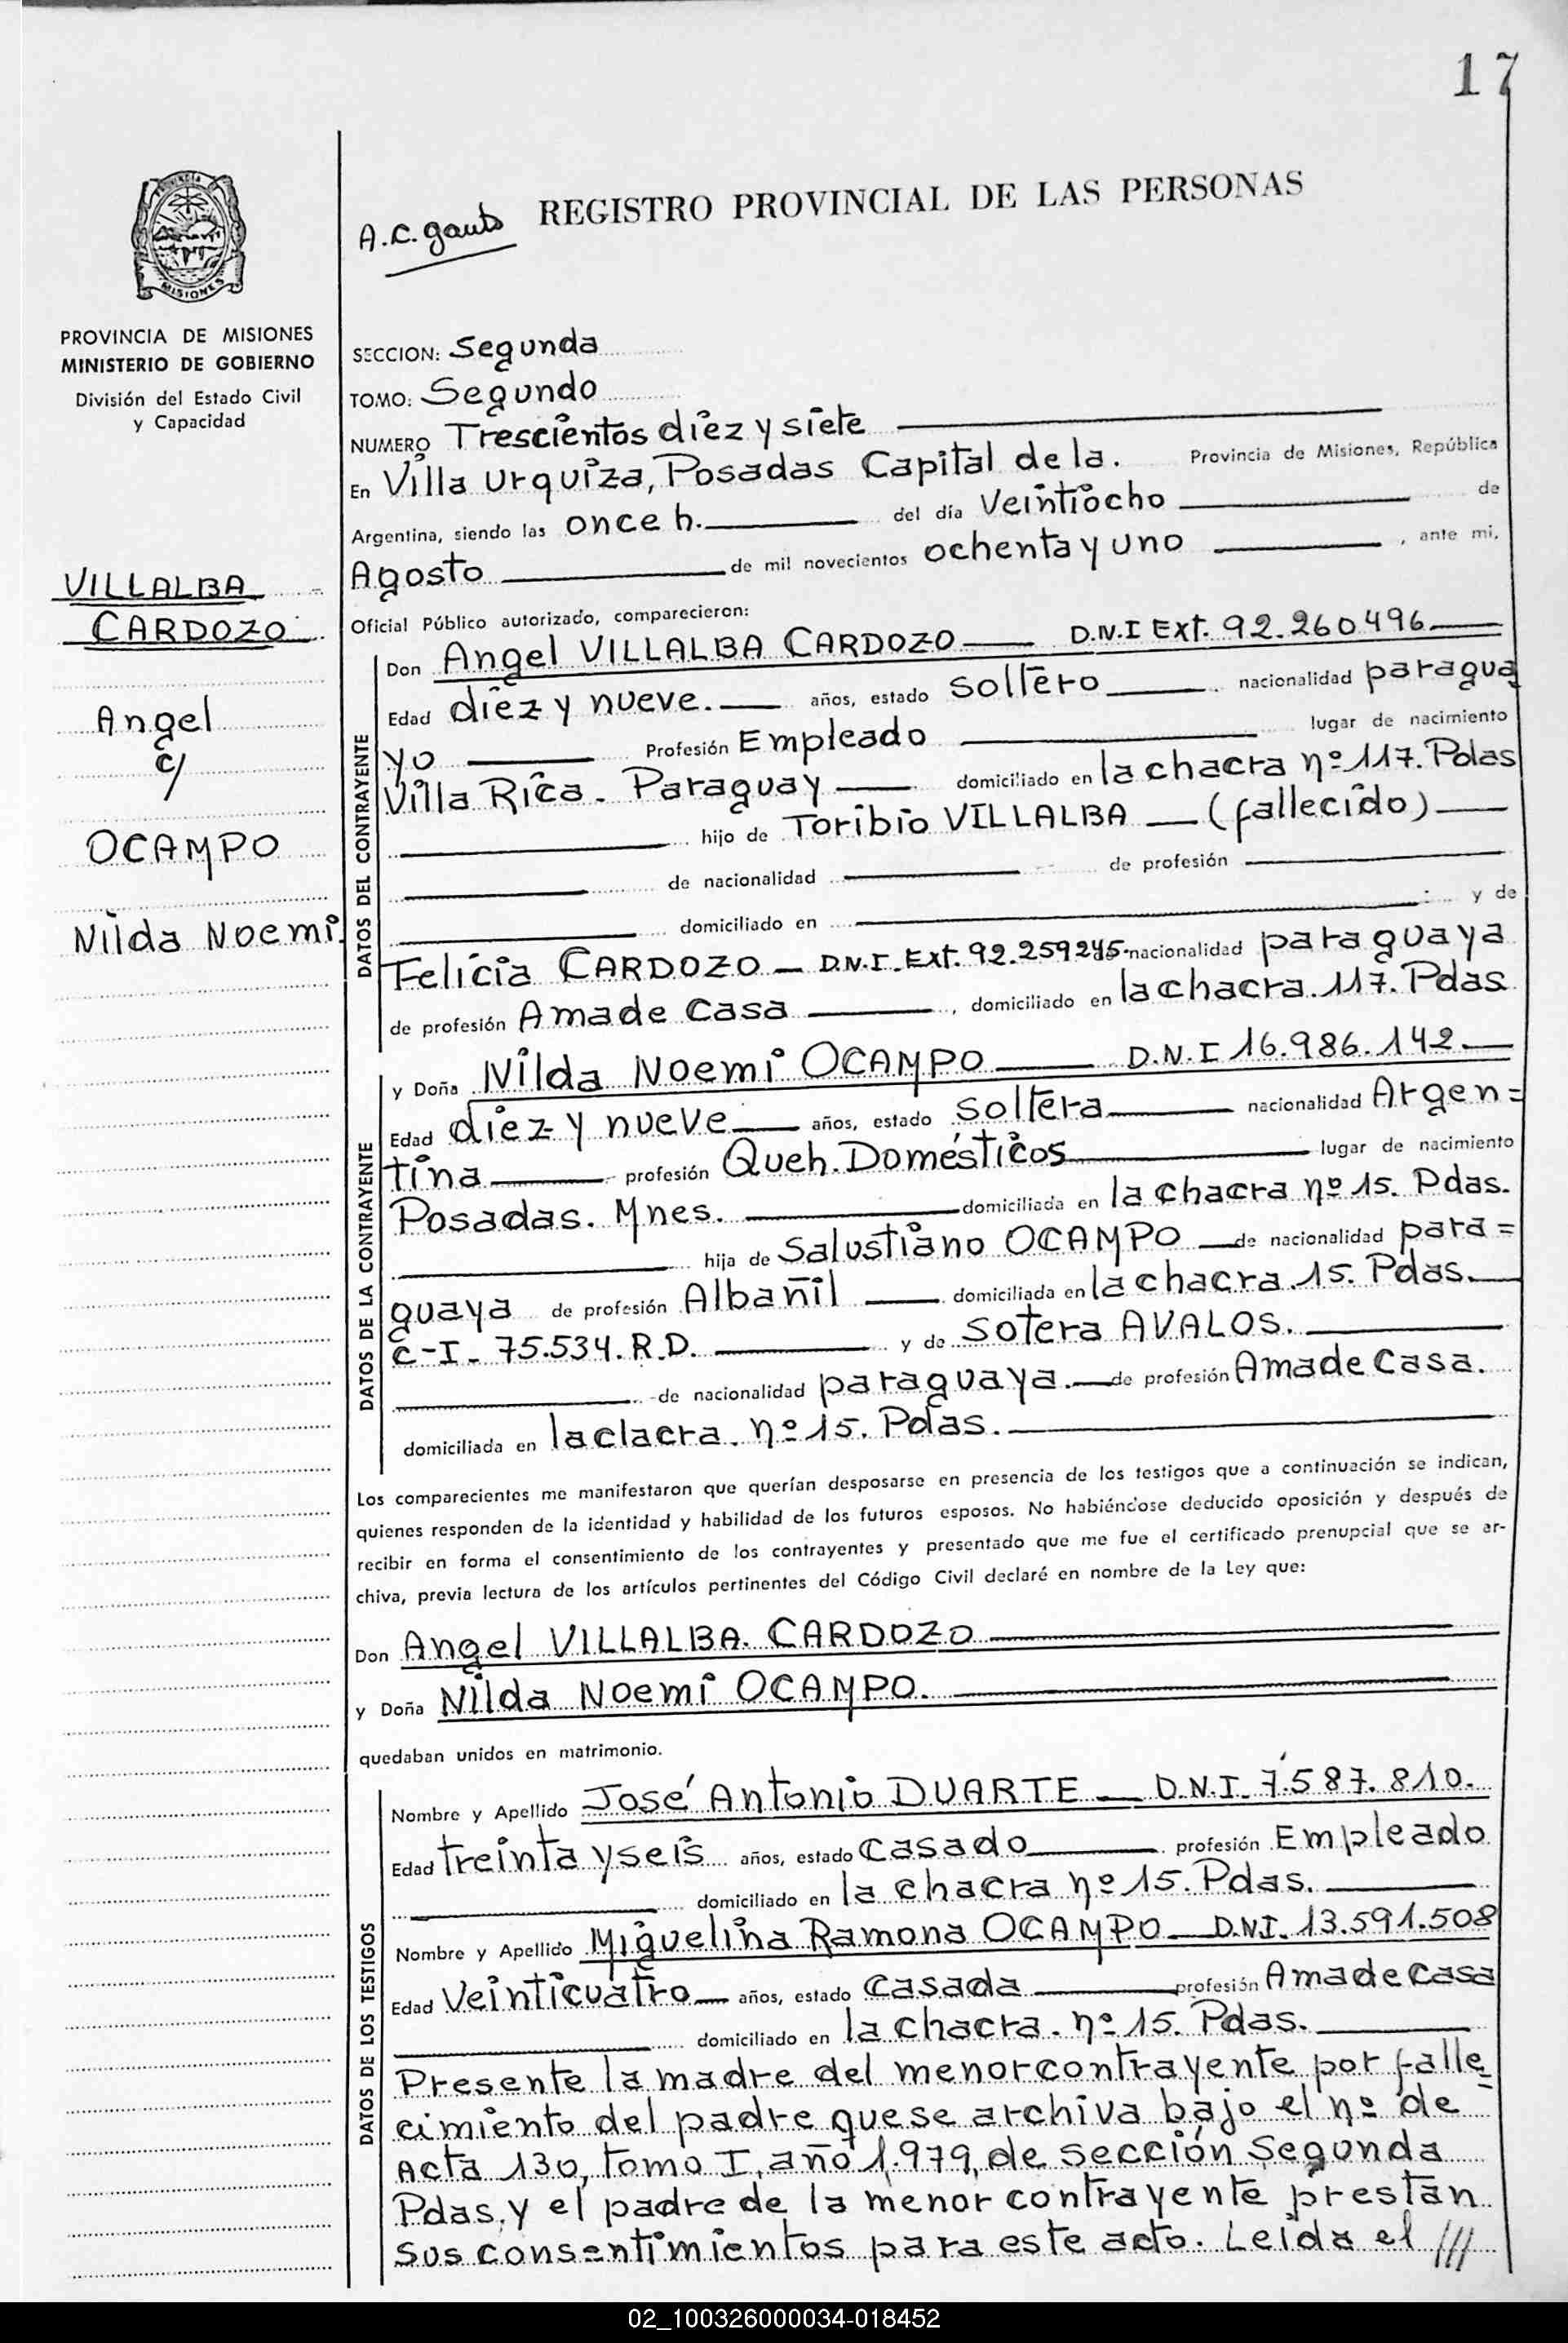 17
A.C. Gauto
REGISTRO PROVINCIAL DE LAS PERSONAS
PROVINCIA
MISIONES
PROVINCIA DE MISIONES
MINISTERIO DE GOBIERNO
División del Estado Civil
y Capacidad
VILLALBA
CARDOZO
Angel
c/
OCAMPO
Nilda Noemi.
SECCION: Segunda
TOMO: Segundo
NUMERO Trescientos diez y siete
En Villa Urquiza, Posadas Capital de la. Provincia de Misiones, República
Argentina, siendo las once h. del día Veintiocho de
Agosto de mil novecientos ochenta y uno, ante mi,
Oficial Público autorizado, comparecieron:
DATOS DEL CONTRAYENTE
Don Angel VILLALBA CARDOZO D.N.I Ext. 92.260496
Edad diez y nueve. años, estado soltero nacionalidad paragua
yo Profesión Empleado lugar de nacimiento
Villa Rica. Paraguay domiciliado en la chacra nº 117. Pdas
hijo de Toribio VILLALBA (fallecido)
de nacionalidad de profesión
domiciliado en y de
Felicia CARDOZO D.N.I. Ext. 92.259245 nacionalidad paraguaya
de profesión Ama de Casa, domiciliado en la chacra. 117. Pdas
DATOS DE LA CONTRAYENTE
y Doña Nilda Noemi OCAMPO D.N.I 16.986.142
Edad diez y nueve años, estado soltera nacionalidad Argen=
tina profesión Queh. Domésticos lugar de nacimiento
Posadas. Mnes. domiciliada en la chacra nº 15. Pdas.
hija de Salustiano OCAMPO de nacionalidad para=
guaya de profesión Albañil domiciliada en la chacra 15. Pdas.
C-I- 75.534. R.D. y de Sotera AVALOS.
de nacionalidad paraguaya. de profesión Ama de Casa.
domiciliada en la clacra. nº 15. Pdas.
Los comparecientes me manifestaron que querían desposarse en presencia de los testigos que a continuación se indican,
quienes responden de la identidad y habilidad de los futuros esposos. No habiéndose deducido oposición y después de
recibir en forma el consentimiento de los contrayentes y presentado que me fue el certificado prenupcial que se ar-
chiva, previa lectura de los artículos pertinentes del Código Civil declaré en nombre de la Ley que:
Don Angel VILLALBA. CARDOZO
y Doña Nilda Noemi OCAMPO.
quedaban unidos en matrimonio.
DATOS DE LOS TESTIGOS
Nombre y Apellido José Antonio DUARTE D.N.I. 7.587.810.
Edad treinta y seis años, estado Casado profesión Empleado
domiciliado en la chacra nº 15. Pdas.
Nombre y Apellido Miguelina Ramona OCAMPO D.N.I. 13.591.508
Edad Veinticuatro años, estado Casada profesión Ama de Casa
domiciliado en la chacra. nº 15. Pdas.
Presente la madre del menor contrayente por falle
cimiento del padre que se archiva bajo el nº de
Acta 130, tomo I, año 1.979, de sección Segunda
Pdas, y el padre de la menor contrayente prestan
sus consentimientos para este acto. Leida el ///
02_100326000034-018452